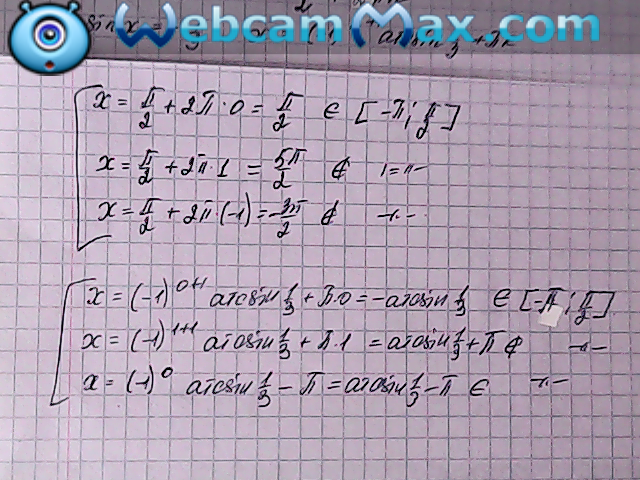 WebcamMax.com
x = π/2 + 2π·0 = π/2 ∈ [-π; π/2]
x = π/2 + 2π·1 = 5π/2 ∉
x = π/2 + 2π·(-1) = -3π/2 ∉
x = (-1)^(0+1) arcsin 1/3 + π·0 = -arcsin 1/3 ∈ [-π; π/2]
x = (-1)^(1+1) arcsin 1/3 + π·1 = arcsin 1/3 + π ∉
x = (-1)^0 arcsin 1/3 - π = arcsin 1/3 - π ∈